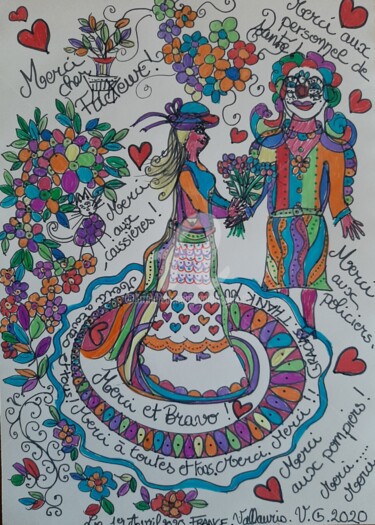 Merci
cher
Facteur!
Merci aux
personnel de
Santé!
Merci
aux
caissières!
Merci
aux
policiers!
THANK YOU
Merci et Bravo!
Merci à toutes et tous Merci Merci!!
Merci
aux pompiers!
Merci....
Merci
Avril 2020 FRANCE. Vallauris. V.G. 2020